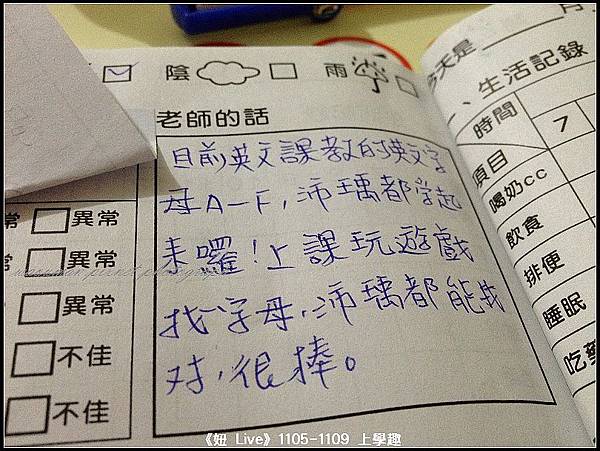 陰 雨
老師的話
目前英文課教的英文字
母A-F,沛瑀都學起
來囉!上課玩遊戲
找字母,沛瑀都能找
对,很棒。
異常
異常
異常
不佳
不佳
今天是 月
、生活記錄
時間 7
項目
喝奶cc
飲食
排便
睡眠
吃藥
《妞 Live》1105-1109 上學趣